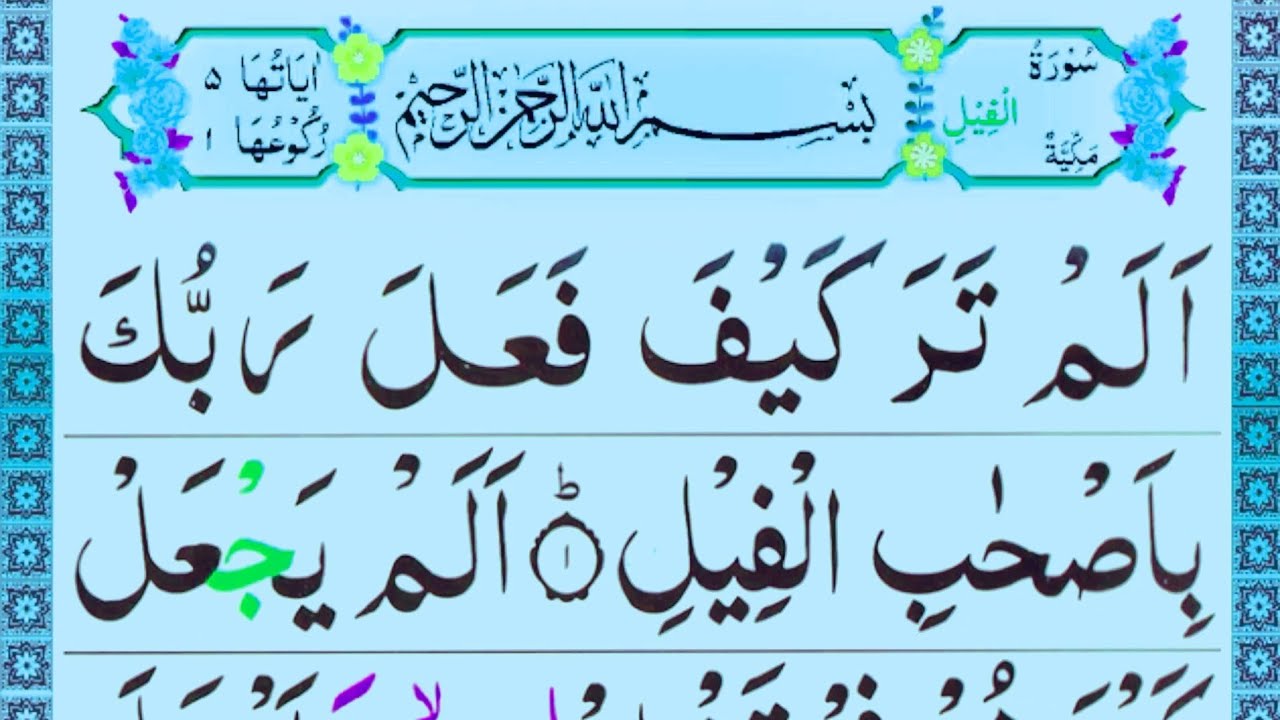 سُوْرَةُ الْفِيْلِ مَكِّيَّةٌ
بِسْمِ اللّٰهِ الرَّحْمٰنِ الرَّحِيْمِ
اٰيَاتُهَا ۵
رُكُوْعُهَا ۱
اَلَمْ تَرَ كَيْفَ فَعَلَ رَبُّكَ
بِاَصْحٰبِ الْفِيْلِ ۱ؕ اَلَمْ يَجْعَلْ